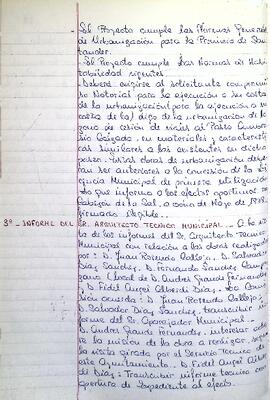 - El Proyecto cumple las Normas
de Urbanización para la Provincia de San-
tander.
- El Proyecto cumple las normas de Habi-
tabilidad vigentes.
- Deberá exigirse al solicitante compromi-
so Notarial para la ejecución a su costa
de la urbanización para la ejecución a su
costa de la digo de la urbanización de la
zona de cesión de viales al Pasto
Calzada, en materiales, característi-
cas similares a los existentes en dicho
paseo. Estas obras de urbanización debe-
ran ser anteriores a la concesión de la li-
cencia Municipal de primera utilización.
Lo que informo a los efectos oportunos en
Cabezón de la Sal, a ocho de Mayo de
firmado ilegible.
3º - INFORME DEL SR. ARQUITECTO TECNICO MUNICIPAL.- A la vis-
ta de los informes del Sr. Arquitecto Técnico
Municipal con relación a las obras realizadas
por: D. Juan Rosendo Calleja, D. Salvador
Díaz Sánchez, D. Fernando Sánchez
(local de D. Andrés Grande Fernández
y D. Fidel Angel Díaz. La Comi-
sión acuerda: D. Juan Rosendo Calleja;
D. Salvador Díaz Sánchez, transcribir in-
forme del Sr. Aparejador Municipal.
D. Andrés Grande Fernández,
la misión de la obra a realizar, según
la visita girada por el Servicio Técnico de
este Ayuntamiento. D. Fidel Angel
Díaz: Transcribir informe técnico con
apertura de Expediente al efecto.